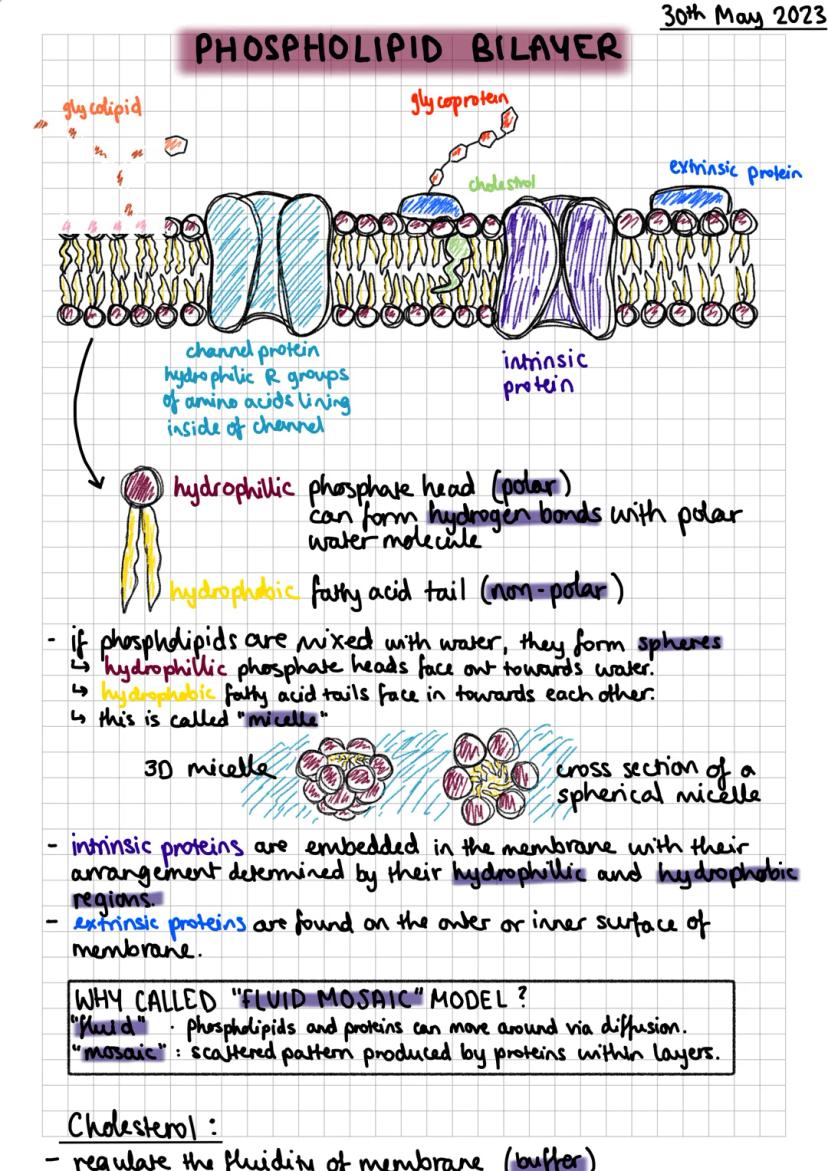 30th May 2023
PHOSPHOLIPID BILAYER
glycolipid
glycoprotein
cholestrol
extrinsic protein
channel protein
hydrophilic R groups
of amino acids lining
inside of channel
intrinsic
protein
hydrophillic phosphate head (polar)
can form hydrogen bonds with polar
water molecule
hydrophobic fatty acid tail (non-polar)
- if phospholipids are mixed with water, they form spheres
↳ hydrophillic phosphate heads face out towards water.
↳ hydrophobic fatty acid tails face in towards each other.
↳ this is called "micelle"
3D micelle
cross section of a
spherical micelle
- intrinsic proteins are embedded in the membrane with their
arrangement determined by their hydrophillic and hydrophobic
regions.
- extrinsic proteins are found on the outer or inner surface of
membrane.
WHY CALLED "FLUID MOSAIC" MODEL?
"fluid" · phospholipids and proteins can move around via diffusion.
"mosaic" : scattered pattern produced by proteins within layers.
Cholesterol :
- regulate the fluidity of membrane (buffer)